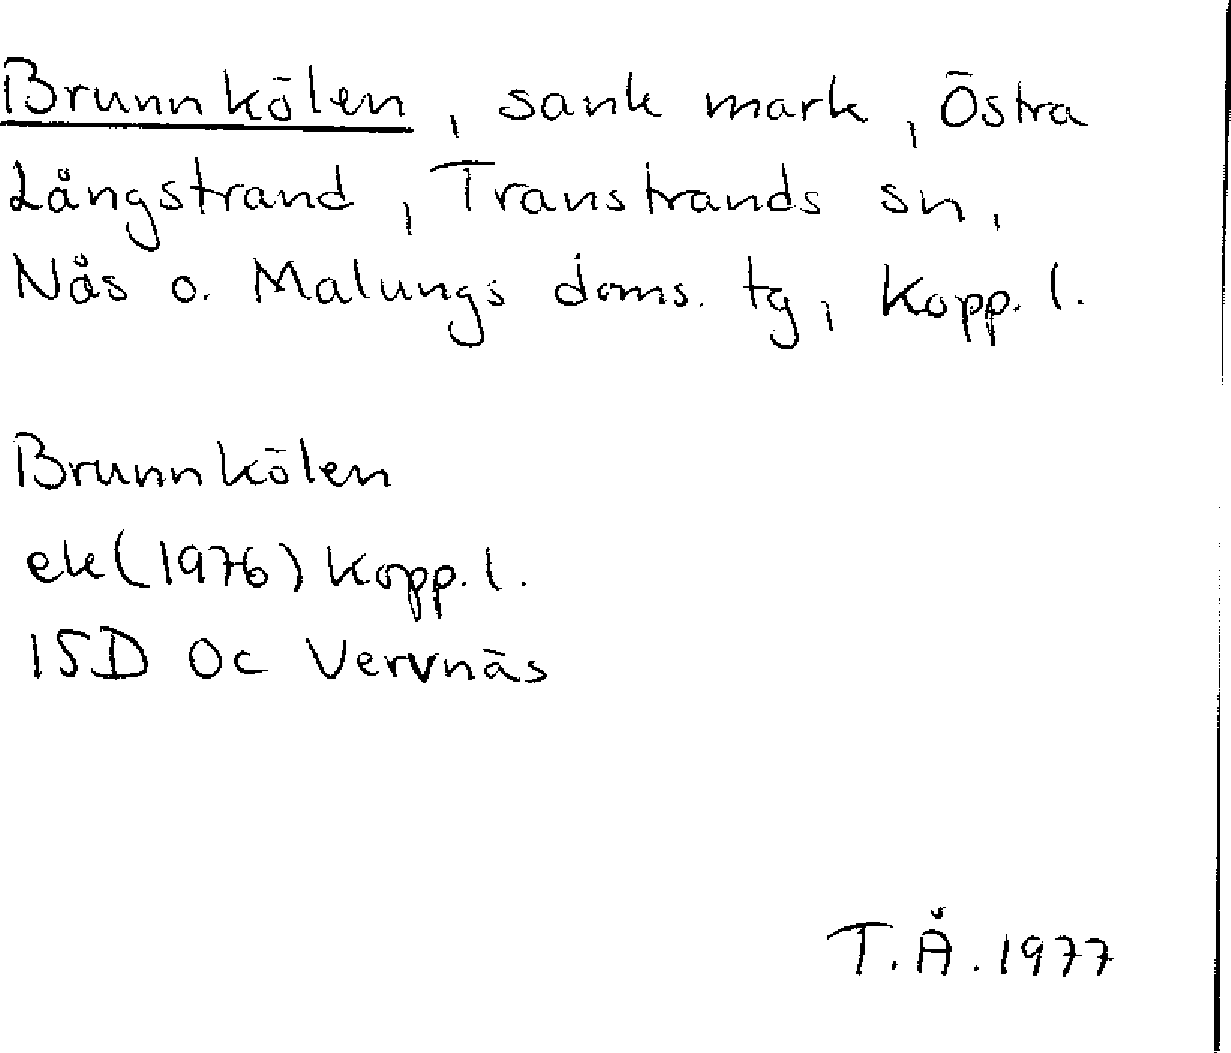 Brunnkölen, sank mark, Östra
Långstrand, Transtrands sn,
Nås o. Malungs doms. tg, Kopp. l.
Brunnkölen
ek (1976) Kopp. l.
15D 0c Vervnäs
T.Å. 1977